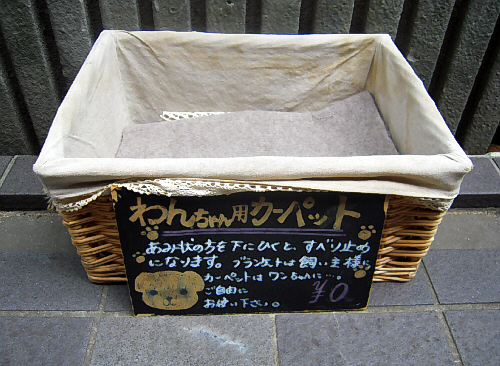 わんちゃん用カーペット
あみ状の方を下にひくと、すべり止め
になります。ブランケットは飼い主様に
カーペットはワンちゃんに…。
ご自由に
お使い下さい。
¥0